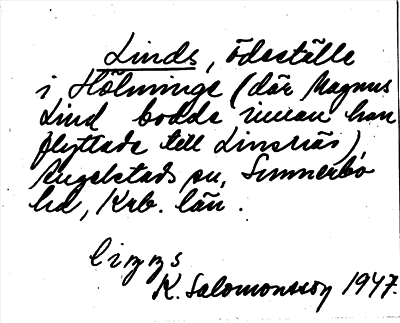 Linds, ödeställe
i Hölminge (där Magnus
Lind bodde innan han
flyttade till Linsnäs)
Angelstads sn, Sunnerbo
hd, Krb. län.
K. Salomonsson 1947.